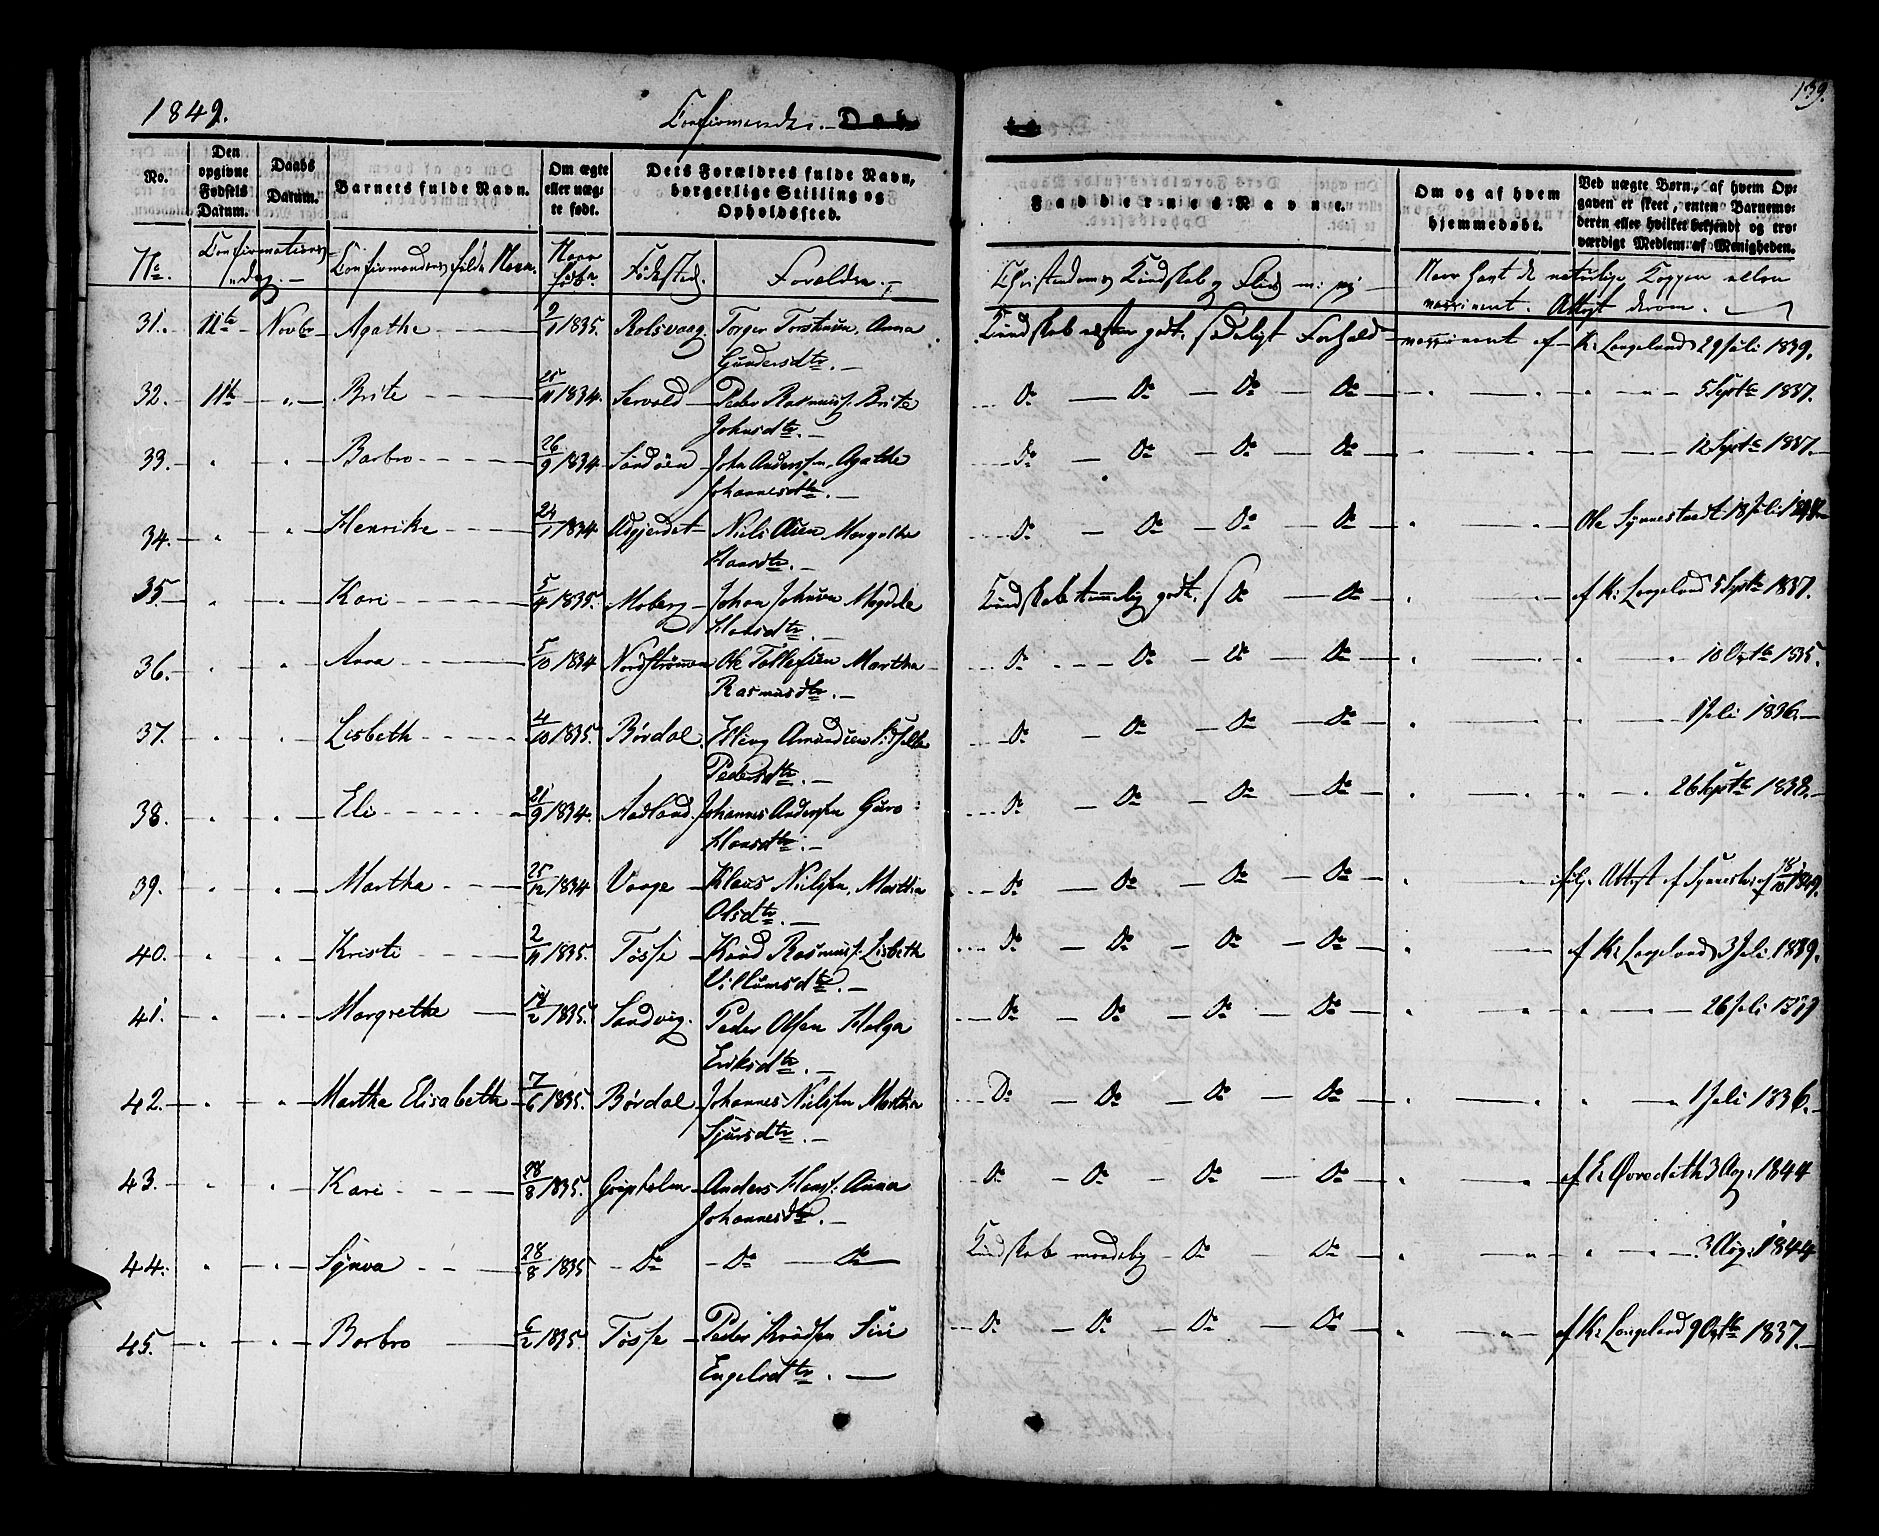 1849.
Confirmerede. Døb
te
139.
No.
Den opgivne Fødsels Datum.
Daabs Datum.
Barnets fulde Navn.
Om ægte eller uægte født.
Dets Forældres fulde Navn, borgerlige Stilling og Opholdssted.
Faddernes Navne.
Om og af hvem hjemmedøbt.
Ved uægte Børn, af hvem Opgaven er skeet, enten Barnemoderen eller hvilket bekjendt og troværdigt Medlem af Menigheden.
No.
Confirmations dag.
Confirmandens fulde Navn.
Naar født.
Fødested.
Forældre.
Christendoms Kundskab og Flid
Naar havt de naturlige Kopper eller
vaccineret. Attest derom.
31. 11te Novbr Agathe 2/1 1835. Rolsvaag Torger Torstensen, Anna
Gundersdtr.
Kundskab næsten godt, sædeligt Forhold vaccineret af K: Langeland 29 Juli 1839.
32. 11te " Brite 25/11 1834. Servold Peder Rasmuss. Brite
Johnsdtr.
Do Do Do Do 5 Septbr 1837.
33. Barbro 26/9 1834 Sandøen John Anderssen, Agathe
Johannesdtr.
Do Do Do Do 12 Septbr 1837.
34. Henrike 24/1 1834 Nils Olsen Margrethe
Hansdtr.
Do Do Do Do Ole Synnestvedt 18 Juli
35. Kari 5/4 1835. Moberg Johan Johnsen Magdele
Hansdtr.
Kundskab temmelig godt, s Do Do af K: Langeland 5 Septbr 1837.
36. Anna 5/10 1834 Nordstrømen Ole Tollefsen Martha
Rasmusdtr.
Do Do Do Do 10 Octbr 1835.
37. Lisbeth 4/10 1835. Børdal Elling Amundsen
Pedersdtr.
Do Do Do Do 1 Juli 1836.
38. Eli 21/9 1834. Aadland Johannes Anderssen Guro
Hansdtr.
Do Do Do Do 26 Septbr 1838.
39. Martha 25/12 1834 Vaage Klaus Nielssen, Martha
Olsdtr.
Do Do Do Do Attest af Synnestvedt 18/10 1849.
40. Kristi 2/11 1835. Tøsse Knud Rasmuss. Lisbeth
Villumsdtr.
Do Do Do Do af K: Langeland 3 Juli 1839.
41. Margrethe 18/2 1835. Sandvig. Peder Olsen Helga
Eriksdtr.
Do Do Do Do 26 Juli 1839
42. Martha Elisabeth 7/6 1835. Børdal Johannes Nielssen Martha
Sjursdtr.
Do Do Do Do 1 Juli 1836.
43. Kari 28/8 1835. Gripholm Anders Hanss: Anna
Johannesdtr.
Do Do Do Do af E: Øvredith 3 Aug: 1844
44. Synva 28/8 1835 Do Do Do
Kundskab maadelig Do Do 3 Aug: 1844
45. Barbro 6/2 1835. Tøsse Peder Knudsen Siri
Engelsdtr.
Do Do Do Do af K: Langeland 9 Octbr 1837.